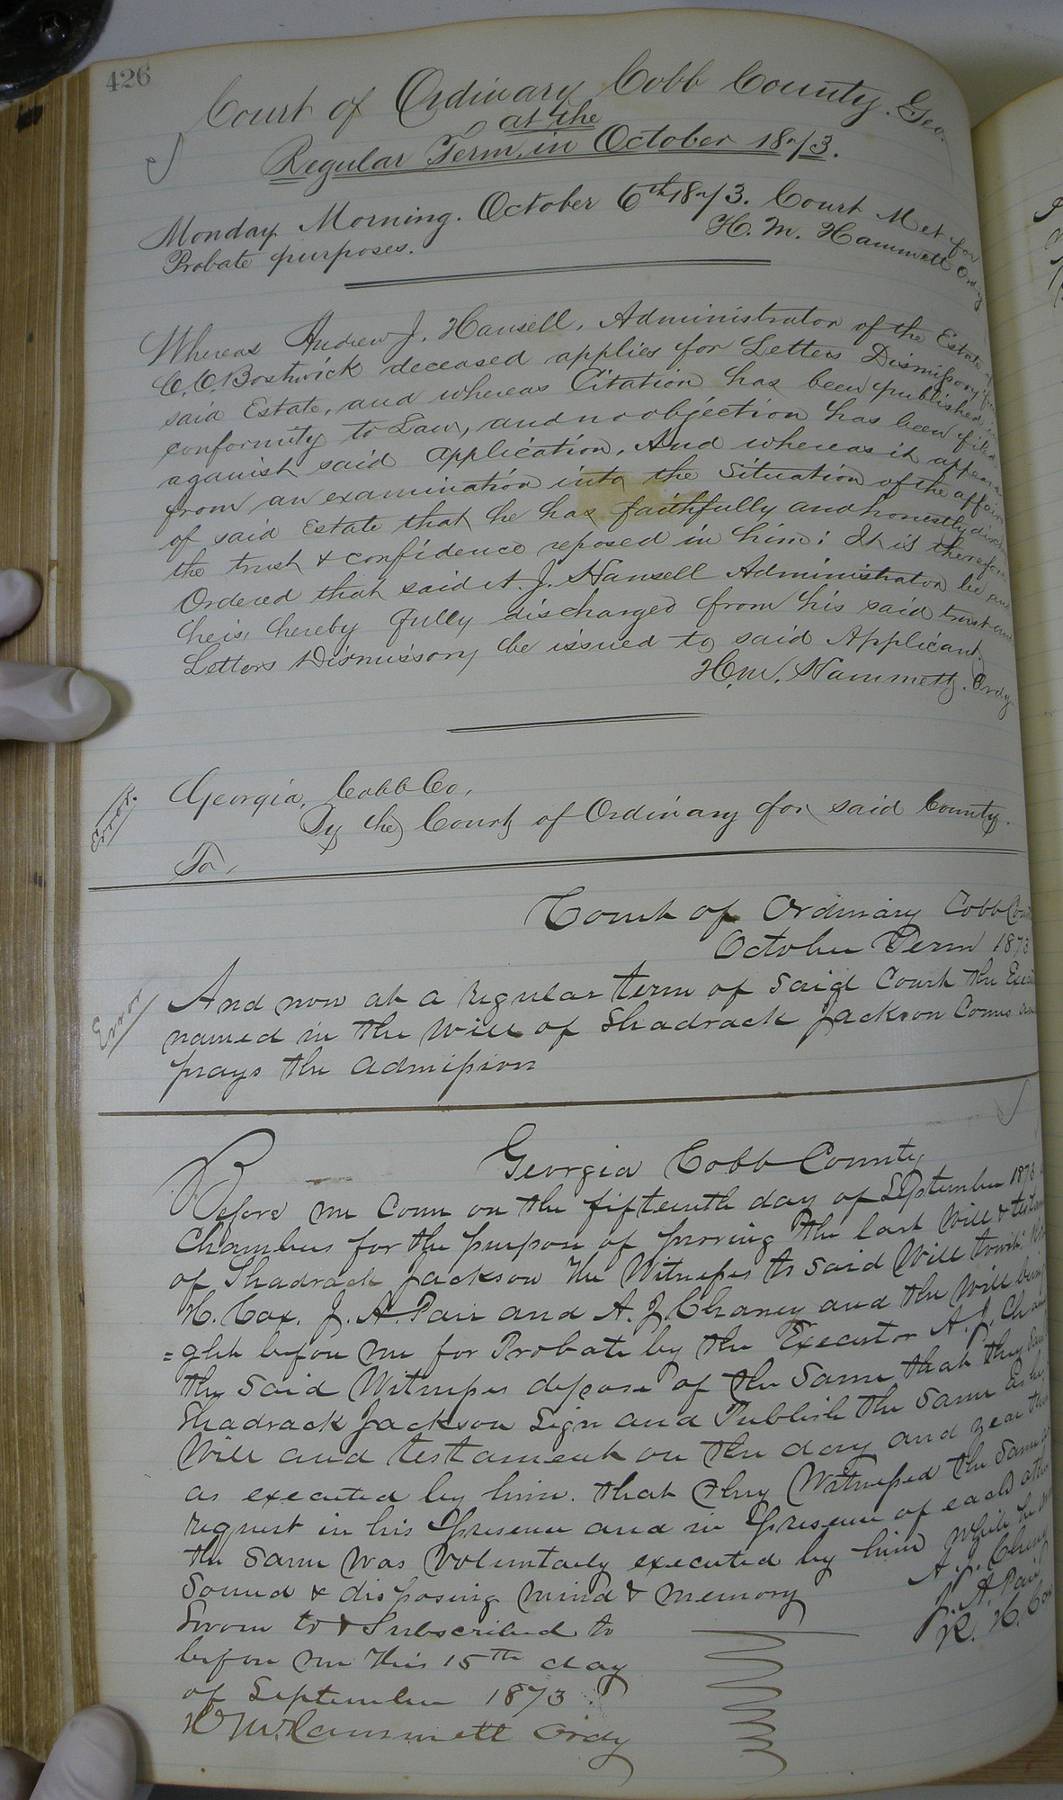 426
Court of Ordinary Cobb County. Geo.
at the
Regular Term, in October 1873.
Monday Morning. October 6th 1873. Court Met for
Probate purposes. H. M. Hammett Ordy
Whereas Andrew J. Hansell, Administrator of the Estate of
C. C. Bostwick deceased applies for Letters Dismissory from
said Estate, and whereas Citation has been published in
conformity to Law, and no objection has been filed
against said application, And whereas it appears
from an examination into the Situation of the affairs
of said Estate that he has faithfully and honestly
the trust & confidence reposed in him: It is therefore
Ordered that said A. J. Hansell Administrator be and
he is, hereby fully discharged from his said trust and
Letters Dismissory be issued to said Applicant.
H. M. Hammett. Ordy
Error.
Georgia, Cobb Co.
By the Court of Ordinary for said County.
To,
Court of Ordinary Cobb
October Term 1873
Error
And now at a regular term of said Court the
named in the Will of Shadrack Jackson Comes and
prays the admission
Georgia Cobb County
Before me Come on the fifteenth day of September 1873
Chambers for the purpose of proving the last Will &
of Shadrack Jackson the Witnesses to said Will towit
H. Cox. J. A. Pair and A. J. Chaney and the Will being
=ght before me for Probate by the Executor A. J.
the said Witnesses depose of the Same that they
Shadrack Jackson Sign and Publish the Same as his
Will and testament on the day and year
as executed by him. that they Witnessed the Same
request in his presence and in presence of each other
the Same was Voluntarily executed by him while he
Sound & disposing mind & memory
A. J. Chaney
J. A. Pair
R. H. Cox
Sworn to & Subscribed to
before me this 15th day
of September 1873
H M Hammett Ordy